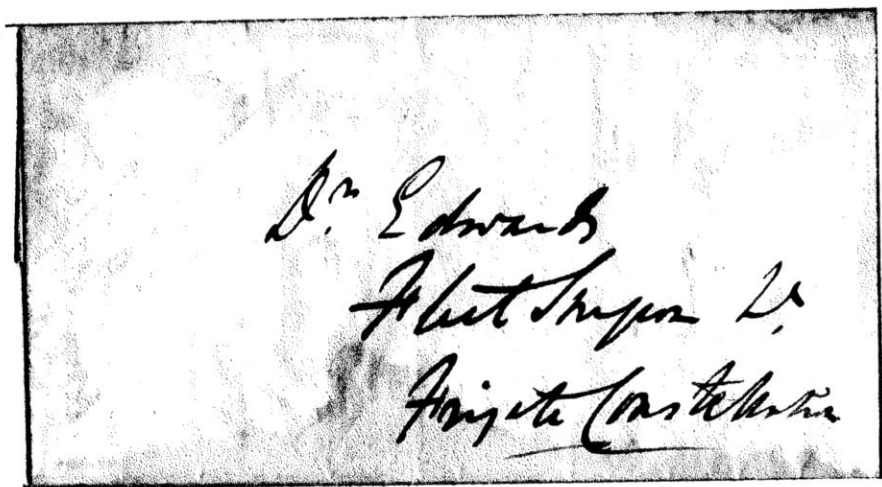 Dr. Edwards
Fleet Surgeon
Frigate Constellation